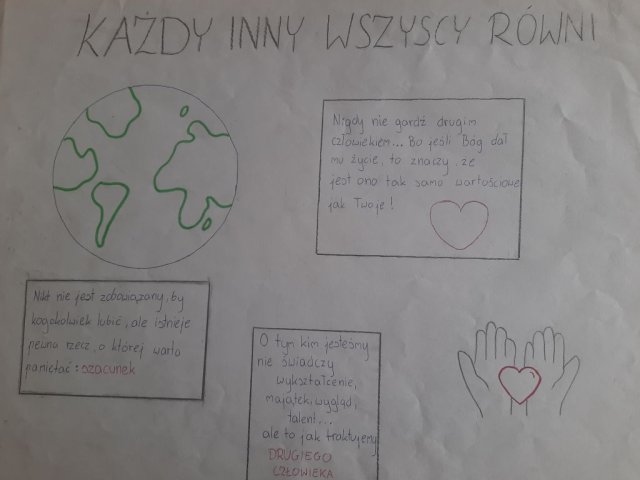 KAŻDY INNY WSZYSCY RÓWNI
Nigdy nie gardź drugim
człowiekiem... Bo jeśli Bóg dał
mu życie, to znaczy, że
jest ono tak samo wartościowe
jak Twoje!
Nikt nie jest zobowiązany, by
kogokolwiek lubić, ale istnieje
pewna rzecz, o której warto
pamiętać: szacunek
O tym kim jesteśmy
nie świadczy
wykształcenie,
majątek, wygląd,
talent...
ale to jak traktujemy
DRUGIEGO
CZŁOWIEKA